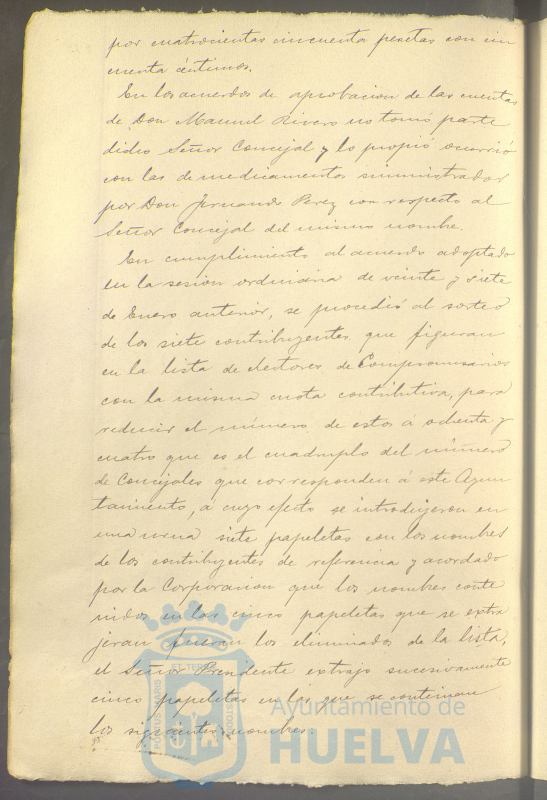 por cuatrocientas cincuenta pesetas con cin
cuenta céntimos.
En los acuerdos de aprobacion de las cuentas
de Don Manuel Rivero no tomó parte
dicho Señor Concejal y lo propio ocurrió
con las de medicamentos suministrados
por Don Fernando Perez con respecto al
Señor Concejal del mismo nombre.
En cumplimiento al acuerdo adoptado
en la sesion ordinaria de veinte y siete
de Enero anterior, se procedió al sorteo
de los siete contribuyentes que figuran
en la lista de electores de Compromisarios
con la misma cuota contributiva, para
reducir el número de estos á ochenta y
cuatro que es el cuadruplo del número
de Concejales que corresponden á este Ayun
tamiento, á cuyo efecto se introdujeron en
una urna siete papeletas con los nombres
de los contribuyentes de referencia y acordado
por la Corporacion que los nombres conte
nidos en las cinco papeletas que se extra
jeran fueran los eliminados de la lista,
el Señor Presidente extrajo sucesivamente
cinco papeletas en las que se contenian
los siguientes nombres:
PORTUS MARIS ET TERRE CUSTODIA
Ayuntamiento de
HUELVA